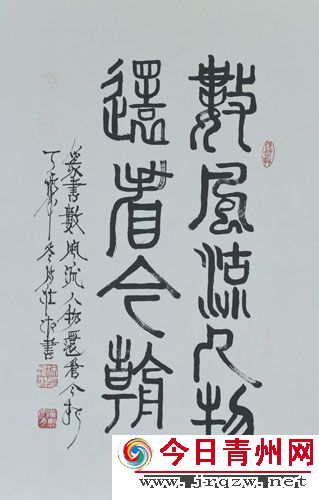 數風流人物
還看今朝
篆書數風流人物還看今朝
冬月 書
今日青州网
www.jrqzw.net